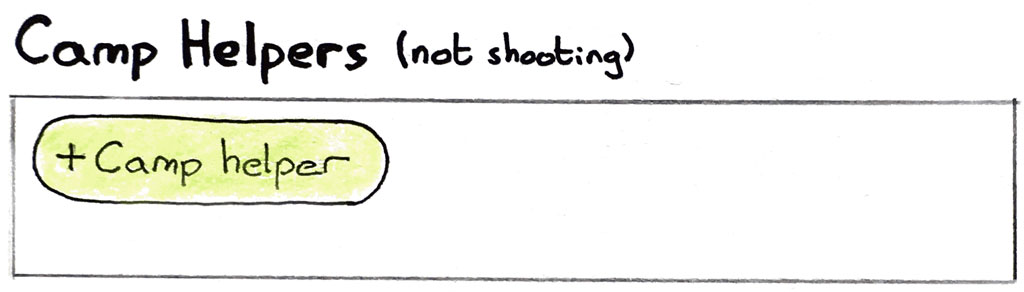 Camp Helpers (not shooting)
+ Camp helper